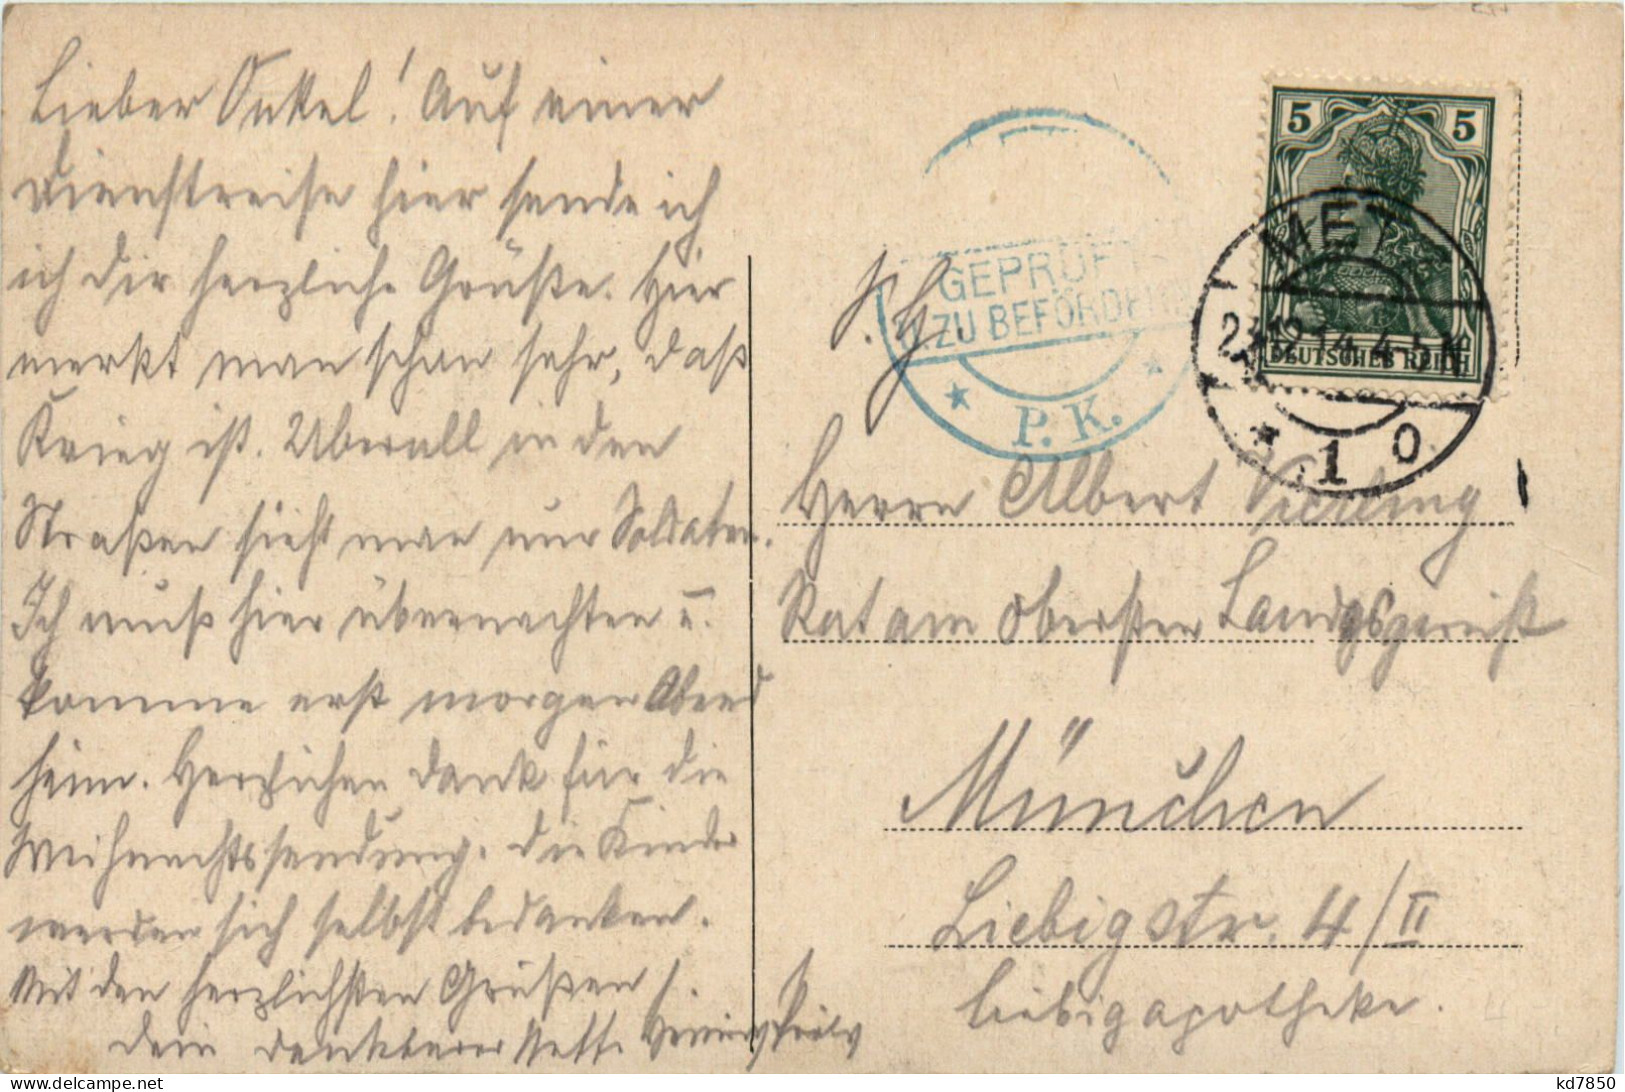 Lieber Onkel! Auf einer
Dienstreise hier sende ich
ich Dir herzliche Grüße. Hier
merkt man schon sehr, daß
Krieg ist. Überall in den
Straßen sieht man nur Soldaten.
Ich muß hier übernachten u.
komme erst morgen Abend
heim. Herzlichen Dank für die
Weihnachtssendung. Die Kinder
werden sich selbst bedanken.
Mit den herzlichsten Grüßen
Dein dankbarer Neffe
5 5
DEUTSCHES REICH
MET
12.14.4-5
* 1 0
GEPRÜFT
ZU BEFÖRDERN
* P. K. *
Herrn Albert
Rat am Obersten Landgericht
München
Liebigstr. 4/II
Liebigapotheke.
kd7850